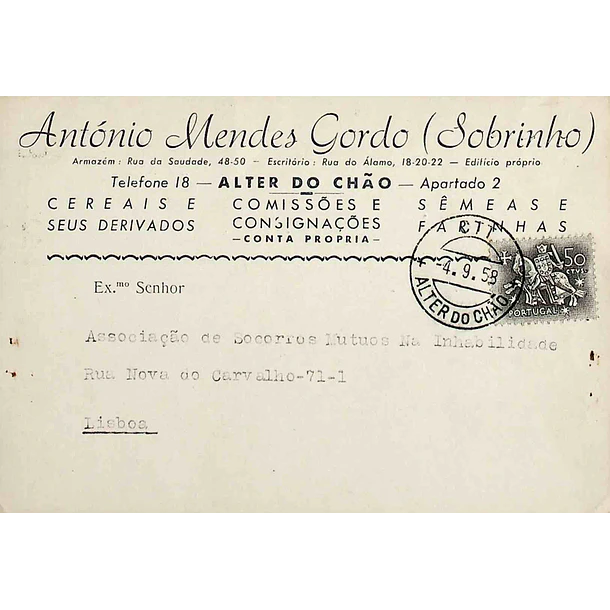 António Mendes Gordo (Sobrinho)
Armazém : Rua da Saudade, 48-50 — Escritório : Rua do Álamo, 18-20-22 — Edifício próprio
Telefone 18 — ALTER DO CHÃO — Apartado 2
CEREAIS E COMISSÕES E SÊMEAS E
SEUS DERIVADOS CONSIGNAÇÕES FARINHAS
—CONTA PROPRIA—
CTT
-4.9.58
ALTER DO CHÃO
50
CTVS
PORTUGAL
Ex.mo Senhor
Associação de Socorros Mutuos Na Inhabilidade
Rua Nova do Carvalho-71-1
Lisboa